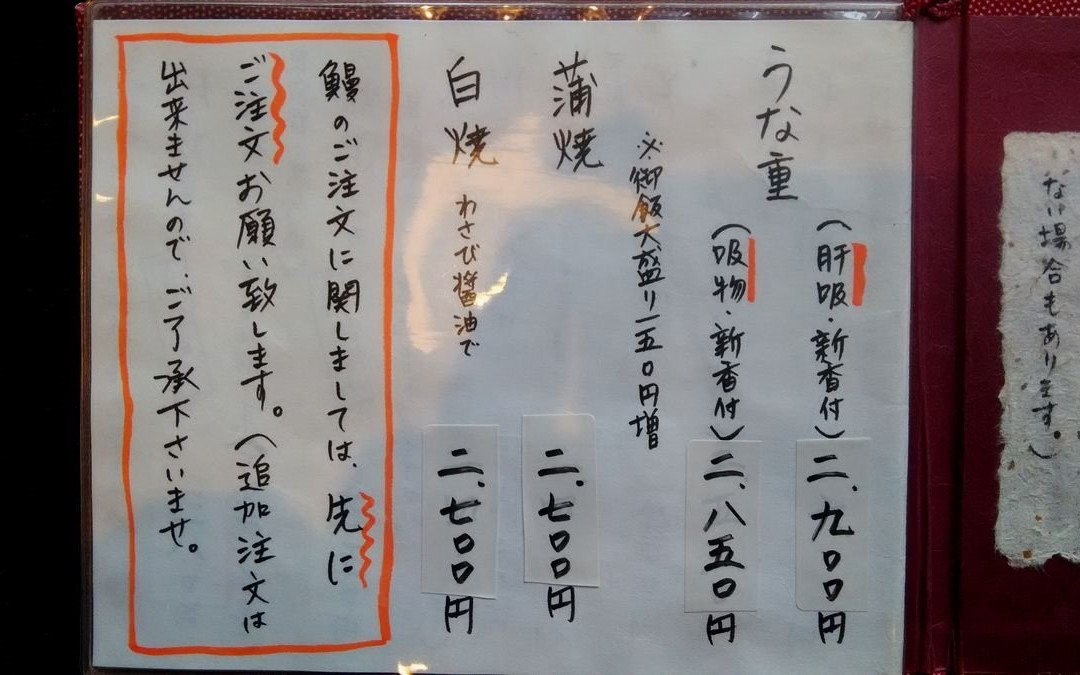 うな重
（肝吸・新香付）二、九〇〇円
（吸物・新香付）二、八五〇円
※御飯大盛り一五〇円増
蒲焼 二、七〇〇円
白焼 わさび醤油で 二、七〇〇円
鰻のご注文に関しましては、先に
ご注文お願い致します。（追加注文は
出来ませんので、ご了承下さいませ。
ない場合もあります。）